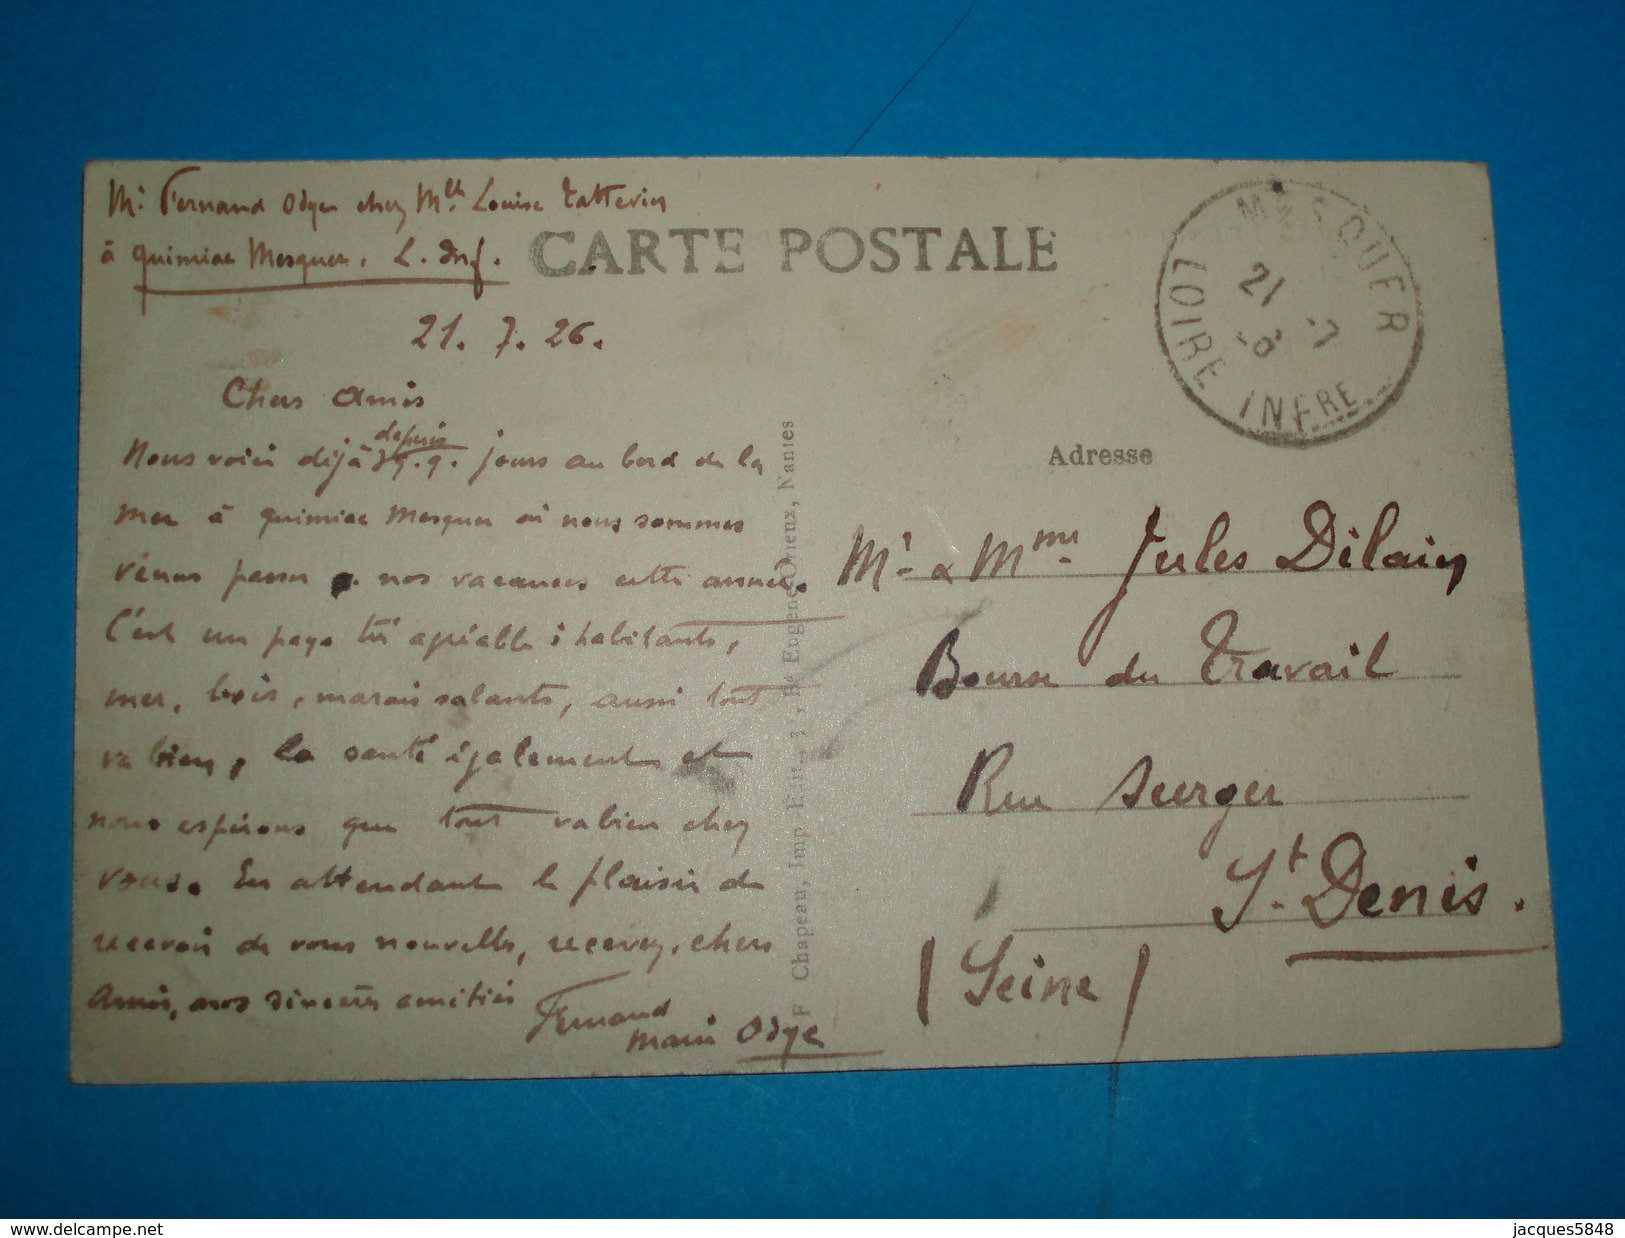 Mr Fernand Odye chez Mlle Louise Tattevin
à Quimiac Mesquer. L. Inf.
CARTE POSTALE
21. 7. 26.
Chers Amis
Nous voici déjà depuis qq. jours au bord de la
mer à Quimiac Mesquer où nous sommes
venus passer nos vacances cette année.
C'est un pays très agréable : habitants,
mer, bois, marais salants, aussi tout
va bien, la santé également et
nous espérons que tout va bien chez
vous. En attendant le plaisir de
recevoir de vous nouvelles, recevez, chers
Amis, nos sincères amitiés
Fernand
Marie Odye
F Chapeau, Imp.-Edit., 37, Bd Eugène-Orieux, Nantes
MESQUER
21 -7
LOIRE INFRE
Adresse
Mr & Mme Jules Dilain
Bourse du Travail
Rue Suger
St. Denis.
(Seine)
www.delcampe.net
jacques5848